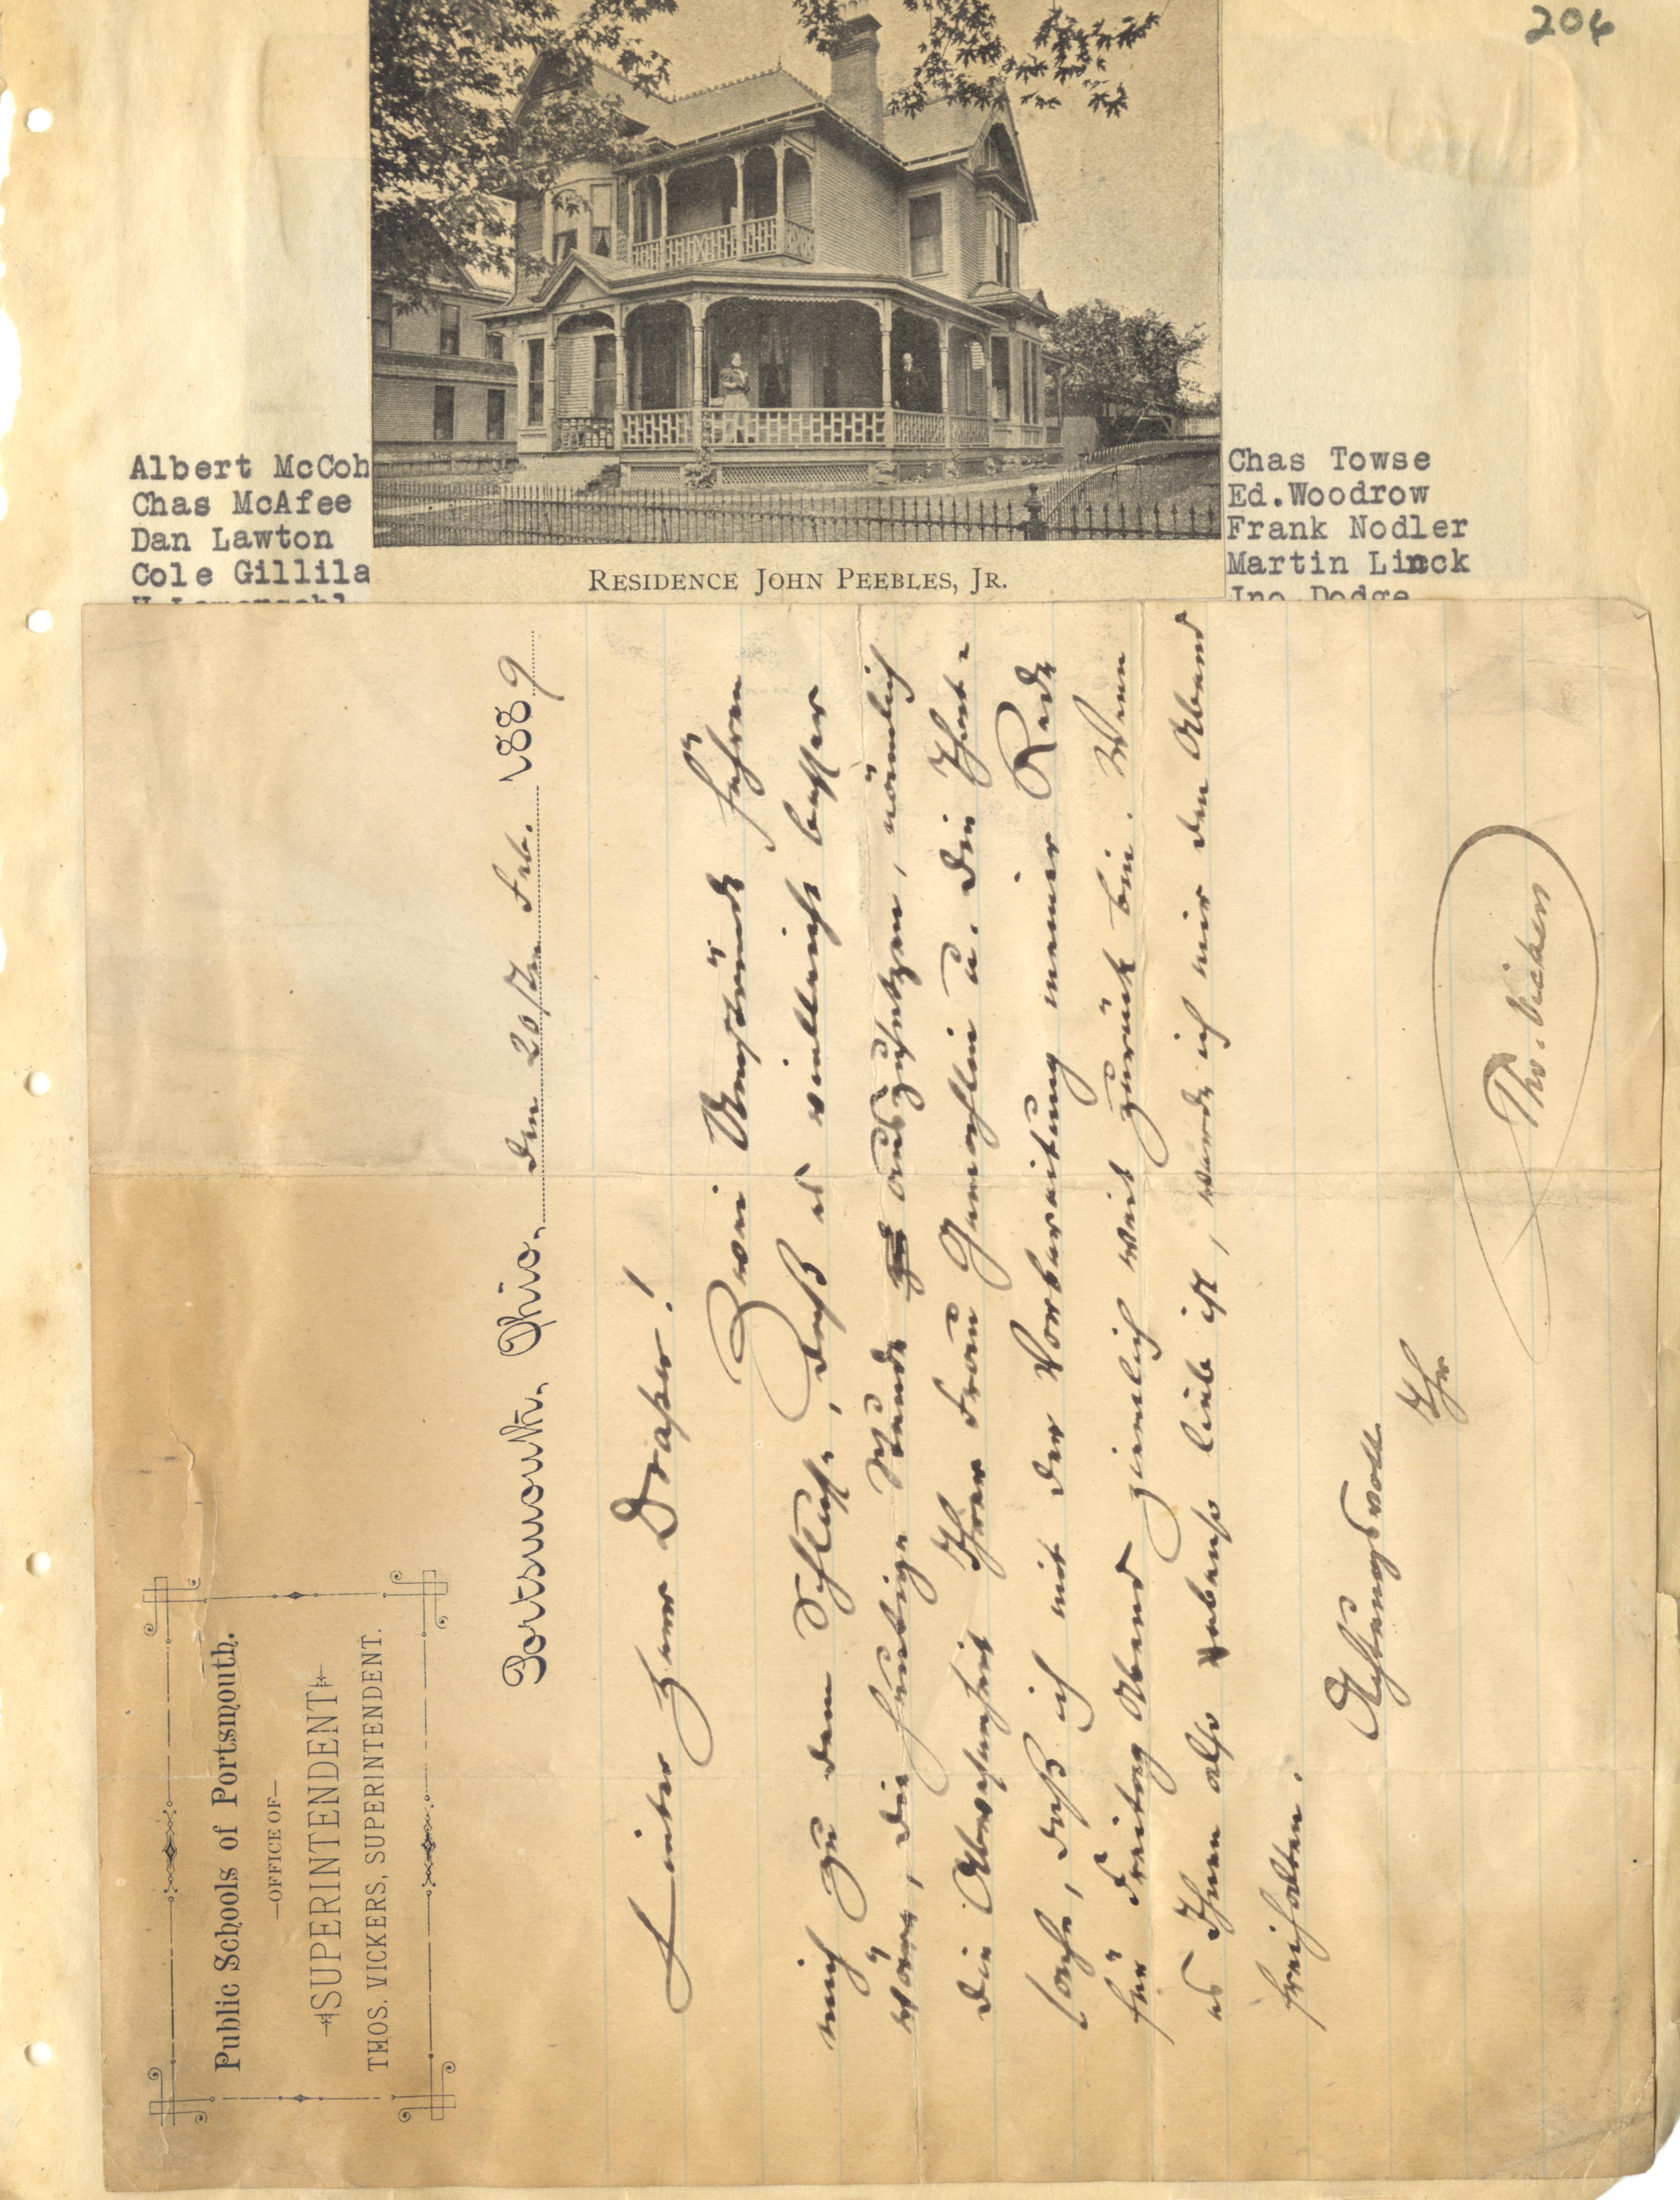 204
Albert McCoh
Chas McAfee
Dan Lawton
Cole Gillila
Chas Towse
Ed.Woodrow
Frank Nodler
Martin Linck
Jno Dodge
RESIDENCE JOHN PEEBLES, JR.
Public Schools of Portsmouth.
OFFICE OF
SUPERINTENDENT
THOS. VICKERS, SUPERINTENDENT.
Portsmouth, Ohio, den 20sten Feb. 1889
Lieber Herr Draper!
Zwei Umstände führen
mich zu dem Schluße, daß es vielleicht besser
wäre, die heutige Stunde auszusetzen, nämlich
die Abwesenheit Ihrer Frau Gemahlin u. die That-
sache, daß ich mit der Vorbereitung meiner Rede
für Freitag Abend ziemlich weit zurück bin. Wenn
es Ihnen also ebenso lieb ist, werde ich mir den Abend
freihalten.
Achtungsvoll
Ihr
Tho. Vickers